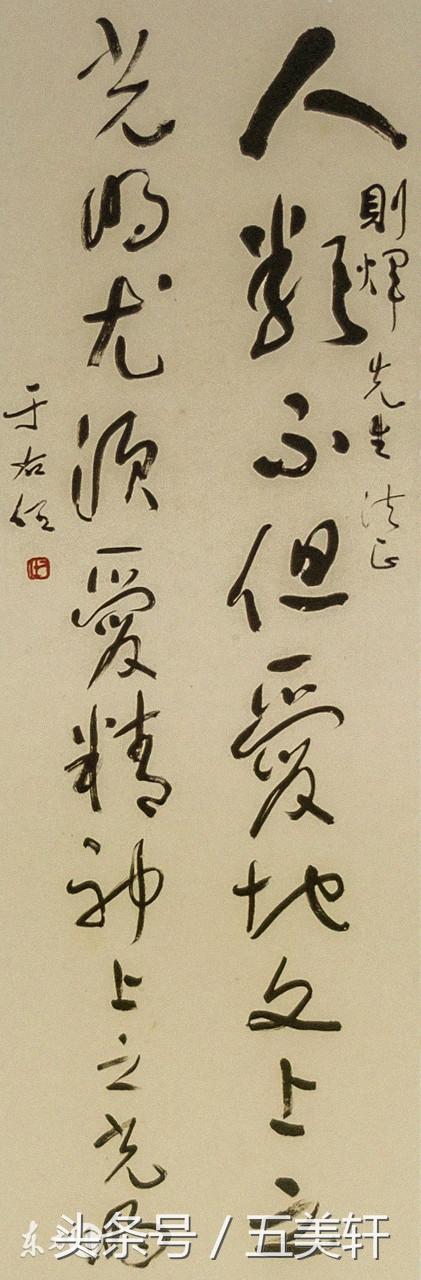 則煇先生法正
人類不但愛地文上之
光明尤須愛精神上之光明
于右任
头条号 / 五美轩